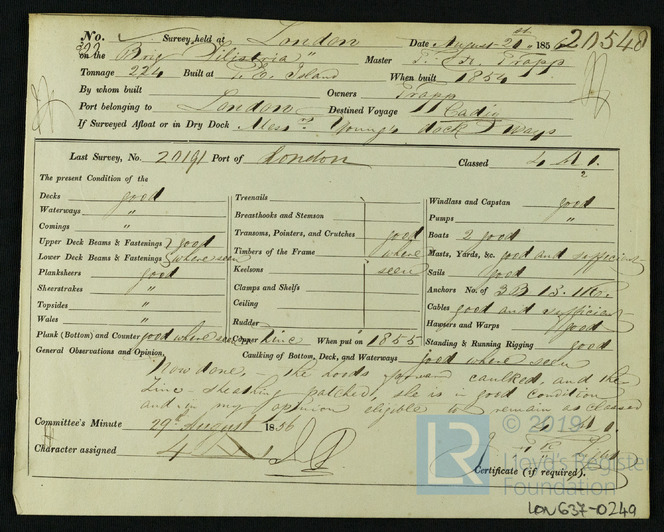 No. 322 Survey held at London Date August 21st 1856 20548
on the Brig "Silistria" Master T. R. Trapp
Tonnage 224 Built at P. E. Island When built 1854
By whom built Owners Trapp
Port belonging to London Destined Voyage Cadiz
If Surveyed Afloat or in Dry Dock Messrs. Young's dock & Ways
Last Survey, No. 20191 Port of London Classed 4 A 1.
The present Condition of the
Decks good
Waterways "
Comings "
Upper Deck Beams & Fastenings } good
Lower Deck Beams & Fastenings } where seen
Planksheers good
Sheerstrakes "
Topsides "
Wales "
Plank (Bottom) and Counter good where seen
Treenails
Breasthooks and Stemson
Transoms, Pointers, and Crutches good
Timbers of the Frame where
Keelsons seen
Clamps and Shelfs
Ceiling
Rudder
Copper Zinc When put on 1855
Windlass and Capstan good
Pumps "
Boats 2 good
Masts, Yards, &c. good and sufficient
Sails good
Anchors No. of 3B 1S. 1K.
Cables good and sufficient
Hawsers and Warps good
Standing & Running Rigging good
General Observations and Opinion, Caulking of Bottom, Deck, and Waterways good where seen
Now done, - the hoods forward caulked, and the
Zinc-sheathing patched, she is in good condition
and in my opinion eligible to remain as classed
4 A 1.
Committee's Minute 29th August 1856
Character assigned 4 A 1
Certificate (if required).
© 2019
LR Lloyd's Register
Foundation
LON637-0249